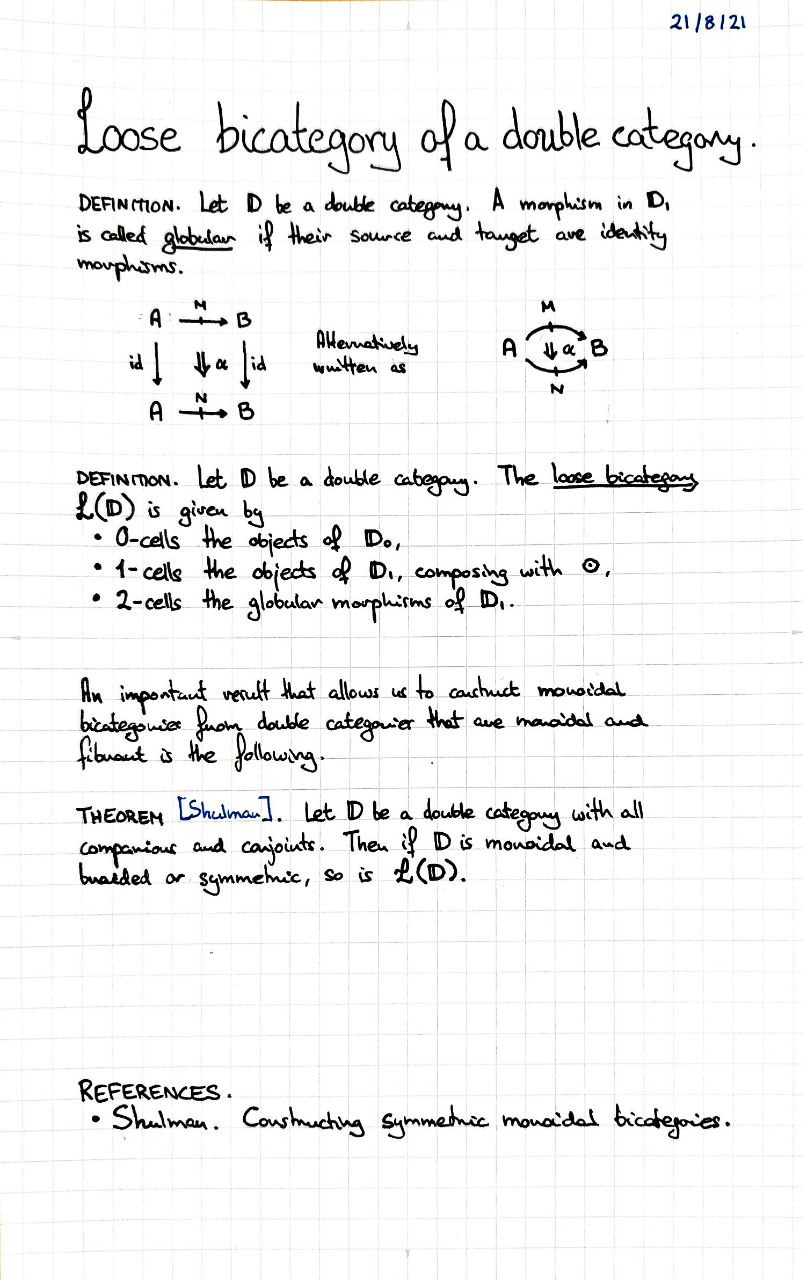 21/8/21
Loose bicategory of a double category.
DEFINITION. Let 𝔻 be a double category. A morphism in 𝔻₁
is called globular if their source and target are identity
morphisms.
M
A B
id ⇓ α id
N
A B
Alternatively
written as
M
A ⇓ α B
N
DEFINITION. Let 𝔻 be a double category. The loose bicategory
ℒ(𝔻) is given by
• 0-cells the objects of 𝔻₀,
• 1-cells the objects of 𝔻₁, composing with ⊙,
• 2-cells the globular morphisms of 𝔻₁.
An important result that allows us to construct monoidal
bicategories from double categories that are monoidal and
fibrant is the following.
THEOREM [Shulman]. Let 𝔻 be a double category with all
companions and conjoints. Then if 𝔻 is monoidal and
braided or symmetric, so is ℒ(𝔻).
REFERENCES.
• Shulman. Constructing symmetric monoidal bicategories.